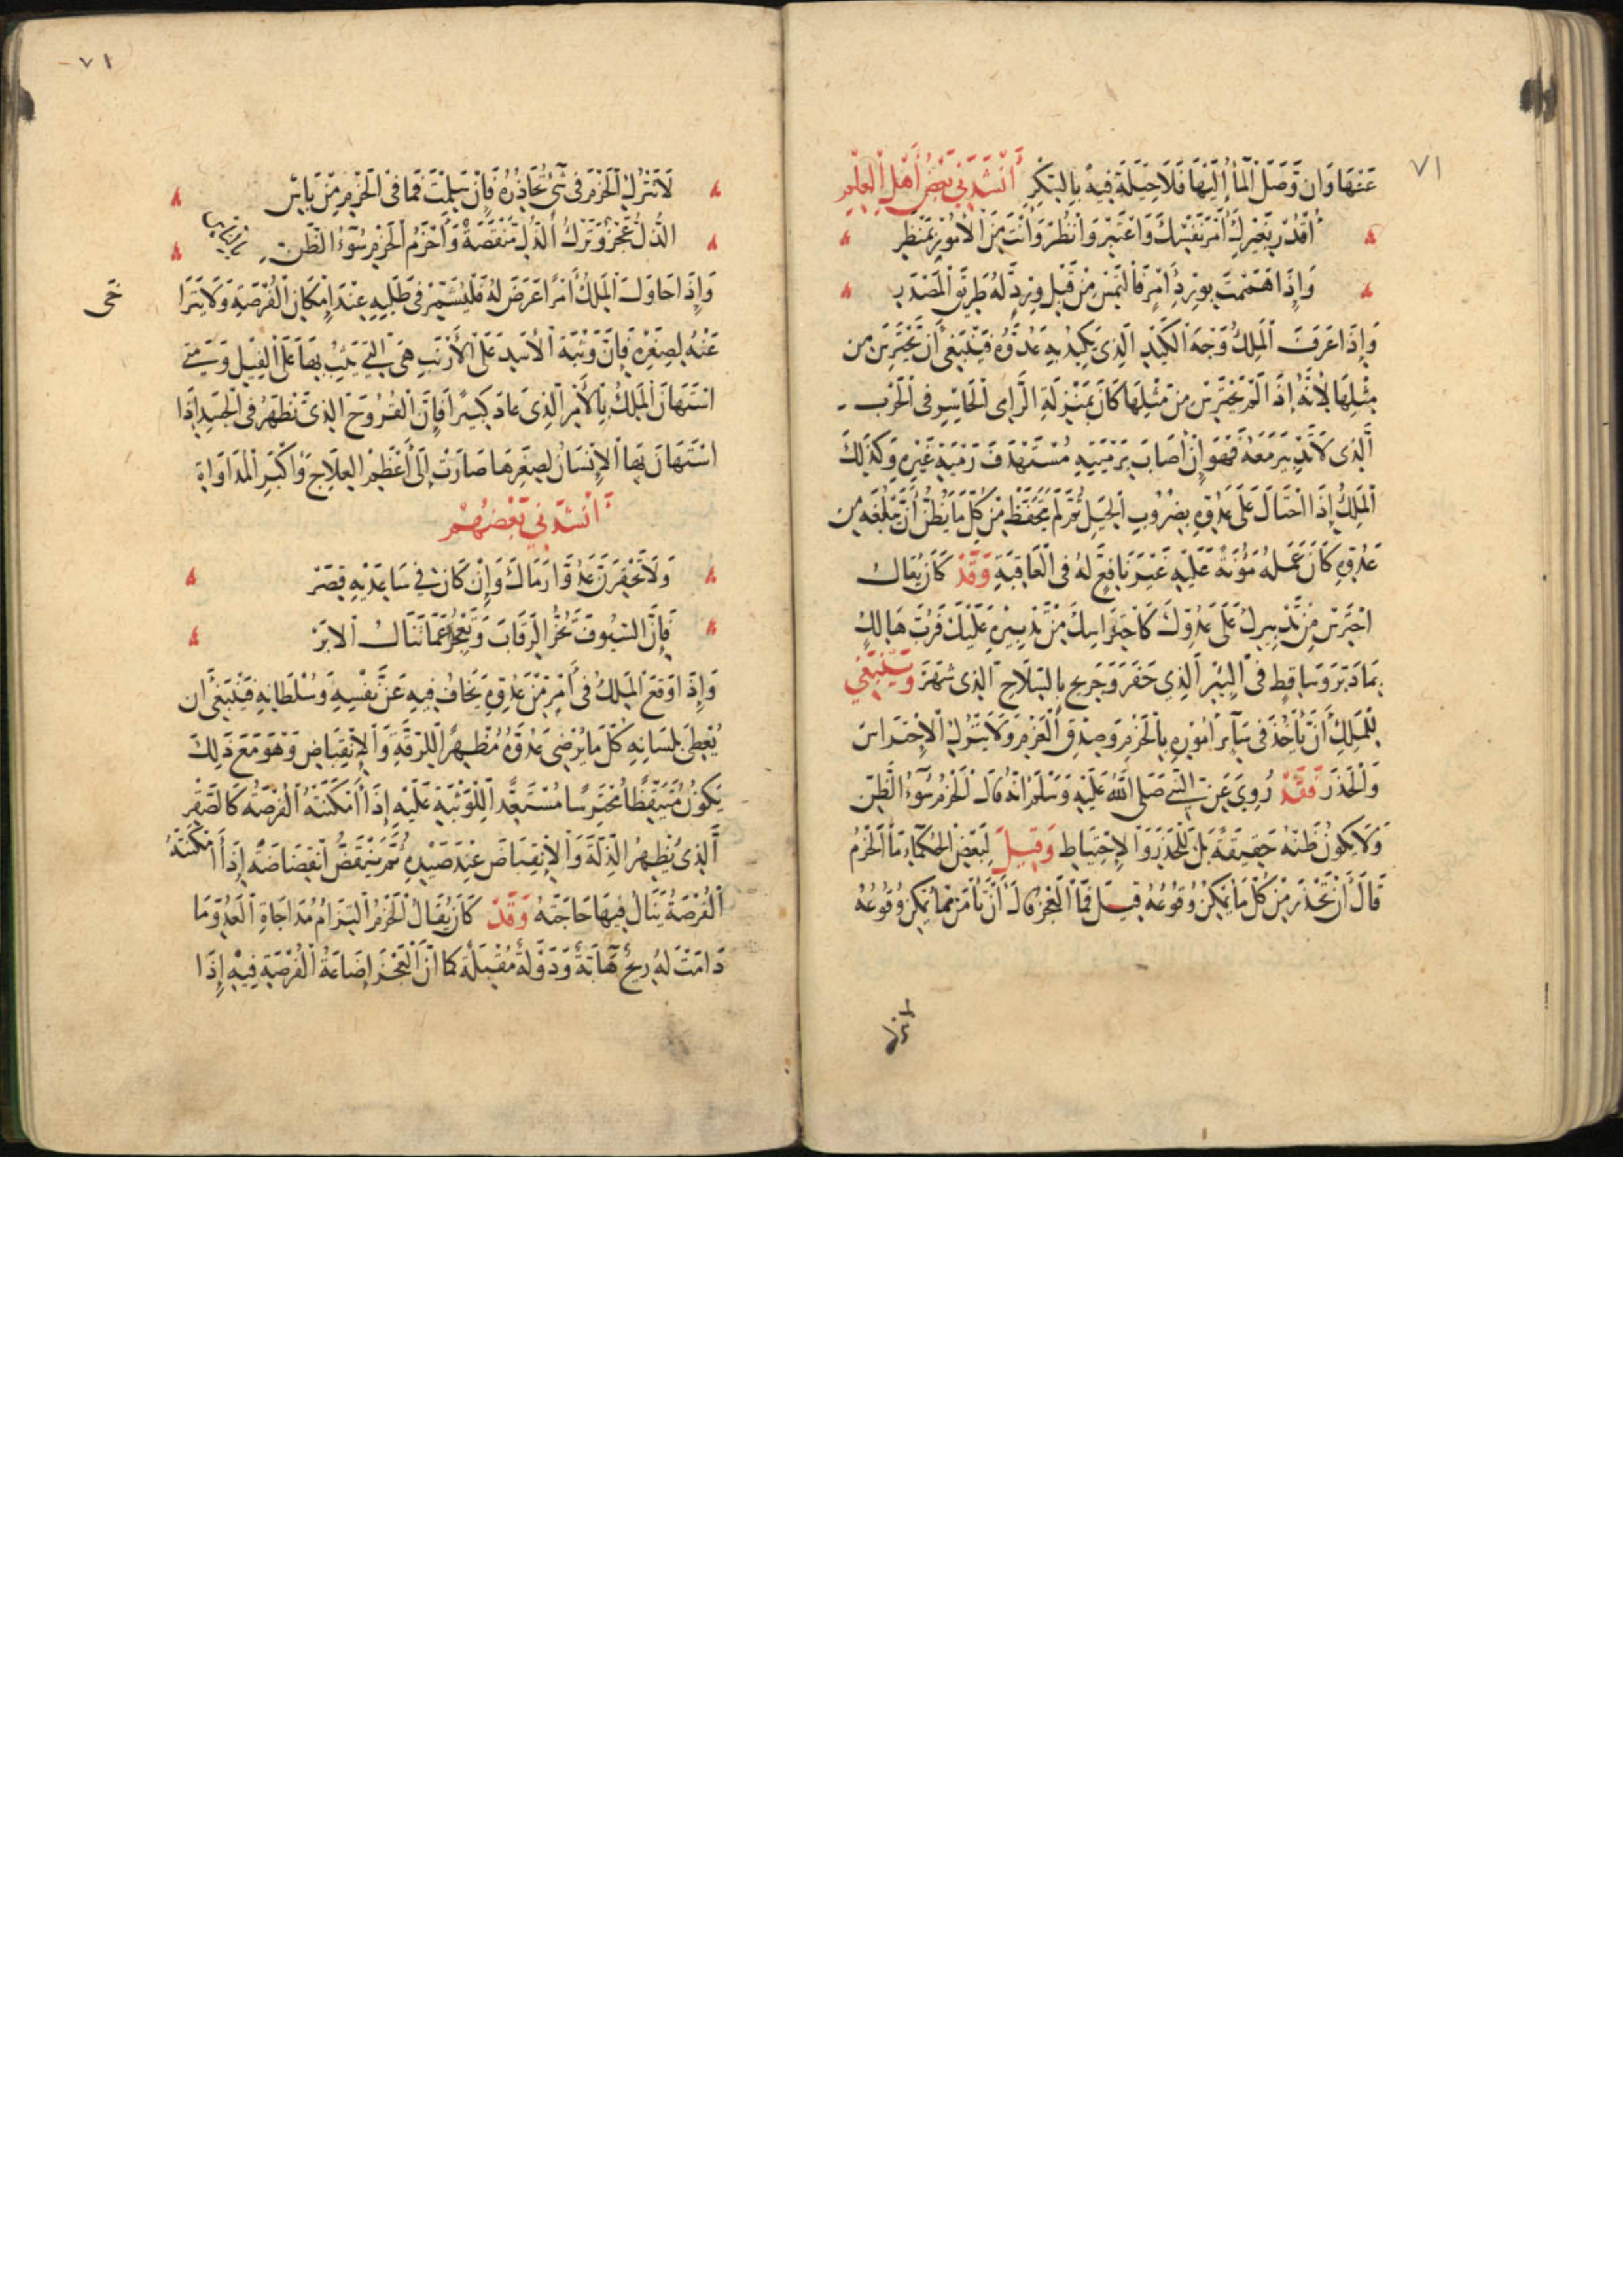 ٧١
عَنْهَا وَان وَصَلَ الْمآءُ اِلَيْهَا فَلَا حِيلَةَ فِيهِ بِالسَّكرِ أَنْشَدَنِي بَعْضُ أَهْلِ الْعِلْمِ
أقْدُرْ بِعَزمِكَ أمْرَ نَفْسِكَ وَاعْتَبِرْ وَانْظُرْ وَأنْتَ مِنَ الأمُورِ بِمَنْظَرِ
وَإِذَا هَمَمْتَ بِوِرْدِ أمْرٍ فَالْتَمِسْ مِنْ قَبْلِ وِرْدٍ لَهُ طَرِيْقَ الْمَصْدَرِ
وَإِذَا عَرَفَ الْمَلِكُ وَجْهَ الْكَيْدِ الَّذِى يَكِيْدُ بِهِ عَدُوَّهُ فَيَنْبَغِى أَنْ يَحْتَرِسَ مِن
مِثْلِهَا لأَنَّهُ إِذَا لَمْ يَحْتَرِسْ مِنْ مِثْلِهَا كَانَ بِمَنْزِلَةِ الرَّامِى الْحَاسِرِ فِى الْحَرْبِ
الَّذِى لَا تُرْسَ مَعَهُ فَهُوَ اِنْ أصَابَ بِرَمْيَتِهِ مُسْتَهْدَفَ رَمْيَةِ غَيْرِهِ وَكَذَلِكَ
الْمَلِكُ إِذَا احْتَالَ عَلَى عَدُوِّهِ بِضُرُوبِ الْحِيَلِ ثُمَّ لَمْ يَتَحَفَّظْ مِنْ كُلِّ مَا يَظُنُّ أَنْ يَبْلُغَهُ مِن
عَدُوِّهِ كَانَ عَمَلُهُ مَؤُنَةً عَلَيْهِ غَيْرَ نَافِعٍ لَهُ فِى الْعَاقِبَةِ وَقَدْ كَانَ يُقَالُ
احْتَرِسْ مِنْ تَدْبِيرِكَ عَلَى عَدُوِّكَ كَاحْتِرَاسِكَ مِنْ تَدْبِيْرِهِ عَلَيْكَ فَرُبَّ هَالِكٍ
بِمَا دَبَّرَ وَسَاقِطٍ فِى الْبِئْرِ الَّذِي حَفَرَ وَجَرِيحٍ بِالسِّلَاحِ الَّذِى شَهَرَ وَيَنْبَغِي
لِلْمَلِكِ أَنْ يَأْخُذَ فِى سَآئِرِ امُوْرِهِ بِالْحَزْمِ وَصِدْقِ الْعَزْمِ وَلَا يَتْرُكَ الْاِحْتِرَاسَ
وَالْحَذَرَ فَقَدْ رُوِيَ عَنِ النَّبِى صَلَى اللَّهُ عَلَيْهِ وَسَلَمَ انَّهُ قَالَ الْحَزْمُ سُوْءُ الظَّنِّ
وَلَا يَكُونُ ظَنُّهُ حَقِيقَةً بَلْ لِلْحَذَرِ وَالاِحْتِيَاطِ وَقِيلَ لِبَعْضِ الْحُكَمَاءِ مَا الْحَزْمُ
قَالَ أَنْ تَحْذَرَ مِنْ كُلِّ مَا يُمْكِنُ وُقُوْعُهُ قِيلَ فَمَا الْعَجْزُ قَالَ أَنْ تَأْمَنَ مِمَّا يُمْكِنُ وُقُوعُهُ
٧١
لَا تَتْرُكِ الْحَزْمَ فِى شَىْءٍ تُحَاذِرُهُ فَإِنْ سَلِمْتَ فَمَا فِى الْحَزْمِ مِنْ بَاسِ
الذُّلُّ عَجْزٌ وَتَرْكُ الذُّلِّ مَنْقَصَةٌ وَأَحْزَمُ الْحَزْمِ سُوْءُ الظَّنِّ
وَإِذَا حَاوَلَ الْمَلِكُ أَمْرًا عَرَضَ لَهُ فَلْيُشَمِّرْ فِى طَلَبِهِ عِنْدَ اِمْكَانِ الْفُرْصَةِ وَلَا يَتَرَا
خَى
عَنْهُ لِصِغَرِهِ فَإِنَّ وَثْبَةَ الْأسَدِ عَلَى الأرْنَبِ هِىَ الَّتِي يَثِبُ بِهَا عَلَى الْفِيْلِ وَمَتى
اسْتَهَانَ الْمَلِكُ بِالأمْرِ الَّذِى عَادَ كَبِيرًا فَإِنَّ الْقُرُوحَ الَّذِى تَظْهَرُ فِى الْجَسَدِ إِذَا
اسْتَهَانَ بِهَا الإنْسَانُ لِصِغَرِهَا صَارَتْ إِلَى أَعْظَمِ الْعِلَاجِ وَأَكْبَرِ الْمُدَاوَاةِ
أَنْشَدَنِي بَعْضُهُمْ
وَلَا تَحْقِرَنَّ عَدُوًّا رَمَاكَ وَإِنْ كَانَ فِي سَاعِدَيْهِ قِصَرْ
فَإِنَّ السُّيُوفَ تَحُزُّ الرِّقَابَ وَتَعْجِزُ عَمَّا تَنَالُ الإبَرْ
وَإِذَا وَقَعَ الْمَلِكُ فِى أَمْرٍ مِنْ عَدُوِّهِ يَخَافُ فِيهِ عَنْ نَفْسِهِ وَسُلْطَانِهِ فَيَنْبَغِى أَن
يُعْطِىَ بِلِسَانِهِ كُلَّ مَا يُرْضِى عَدُوَّهُ مُظْهِرًا لِلرِّقَّةِ وَالاِنْقِبَاضِ وَهُوَ مَعَ ذَلِكَ
يَكُونُ مُتَيَقِّظًا مُحْتَرِسًا مُسْتَعِدًّا لِلْوَثْبَةِ عَلَيْهِ إِذَا أَمْكَنَتْهُ الْفُرْصَةُ كَالصَّقْرِ
الَّذِى يُظْهِرُ الذِّلَّةَ وَالاِنْقِبَاضَ عِنْدَ صَيْدِهِ ثُمَّ يَنْقَضُّ انْقِضَاضَةً إِذَا أَمْكَنَتْهُ
الْفُرْصَةُ يَنَالُ فِيهَا حَاجَتَهُ وَقَدْ كَانَ يُقَالُ الْحَزْمُ الْتِزَامُ مُدَاجَاةِ الْعَدُوِّ مَا
دَامَتْ لَهُ رِيحٌ هَابَّةٌ وَدَوْلَةٌ مُقْبِلَةٌ كَمَا أَنَّ الْعَجْزَ إِضَاعَةُ الْفُرْصَةِ فِيْهِ إِذَا